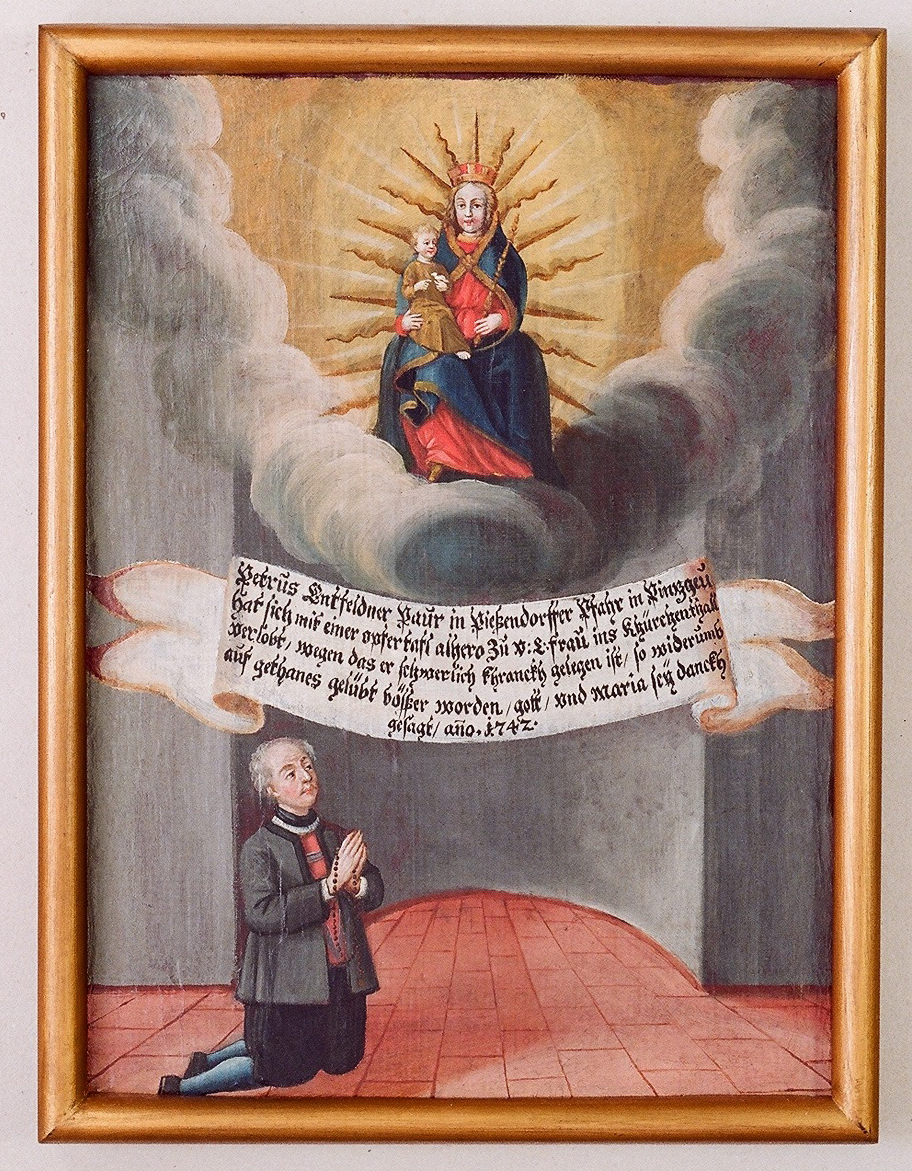 Petrus Entfeldner Paur in Pießendorffer Pfahr in Pinzgeu
hat sich mit einer opfertafl alhero Zu v: L frau ins Khürchenthall
verlobt, wegen das er schwerlich khranckh gelegen ist/ so widerumb
auf gethanes gelübt bösser worden/ gott/ vnd maria seÿ danckh
gesagt/ año. 1742.